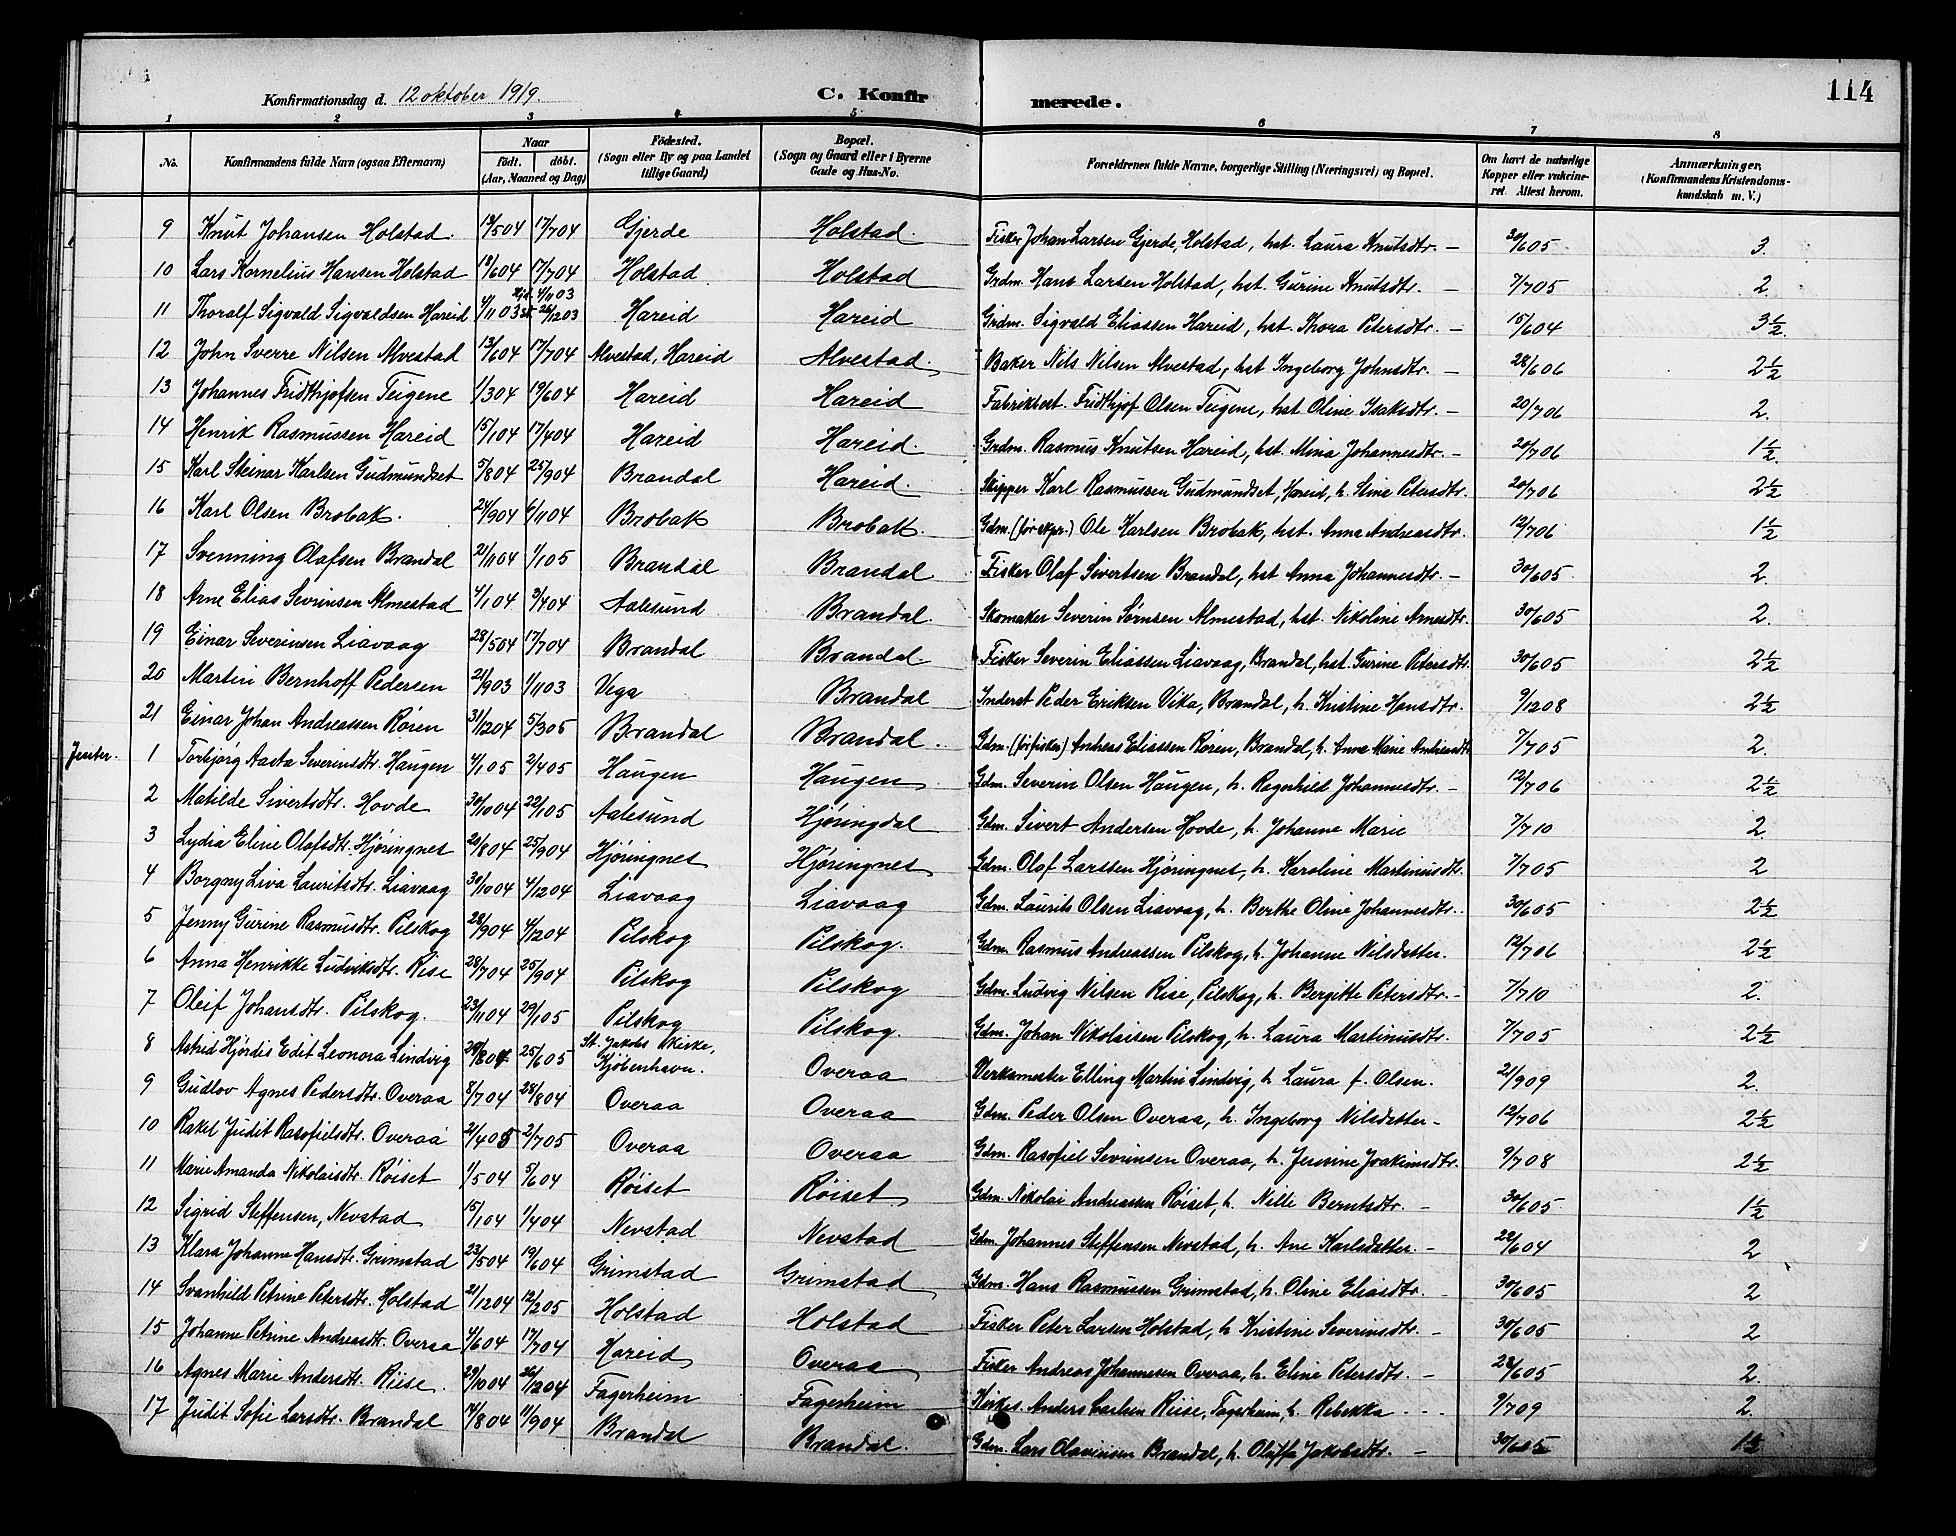 Konfirmationsdag d. 12 oktober 1919. C. Konfirmerede. 114
1 2 3 4 5 6 7 8
No. Konfirmandens fulde Navn (ogsaa Efternavn) Naar født. døbt. (Aar, Maaned og Dag) Fødested. (Sogn eller By og paa Landet tillige Gaard) Bopæl. (Sogn og Gaard eller i Byerne Gade og Hus-No. Forældrenes fulde Navne, borgerlige Stilling (Næringsvei) og Bopæl. Om havt de naturlige Kopper eller vakcineret. Attest herom. Anmærkninger, (Konfirmandens Kristendomskundskab m. V.)
9 Knut Johansen Holstad. 17/704 Gjerde Holstad. Fisker Johan Larsen Gjerde, Holstad, hst. Laura Knutsdtr. – 30/605 3.
10 Lars Kornelius Hansen Holstad 18/604 17/704 Holstad Holstad Grdm. Hans Larsen Holstad, hst. Gurine Knutsdtr. – 7/705 2.
11 Thoralf Sigvald Sigvaldsen Hareid 4/1103 Hjd. 4/1103 st. 26/1203 Hareid Hareid Grdm. Sigvald Eliassen Hareid, hst. Thora Petersdtr. – 15/604 3½.
12 John Sverre Nilsen Alvestad 13/604 17/704 Alvestad, Hareid Alvestad. Baker Nils Nilsen Alvestad, hst Ingeborg Johnsdtr. – 28/606 2½
13 Johannes Fridthjofsen Teigene 1/304 19/604 Hareid Hareid Fabrikbest. Fridthjof Olsen Teigene, hst Oline Isaksdtr. – 20/706 2.
14 Henrik Rasmussen Hareid 15/104 17/404 Hareid Hareid. Grdm. Rasmus Knutsen Hareid, hst. Mina Johannesdtr. – 20/706 1½.
15 Karl Steinar Karlsen Gudmundset 5/804 25/904 Brandal Hareid. Skipper Karl Rasmussen Gudmundset, Hareid, h. Sine Petersdtr. 20/706 2½
16 Karl Olsen Brobak. 24/904 6/1104 Brobak Brobak. Gdm. (før skpr.) Ole Karlsen Brobak, hst. Anna Andreasdtr. 12/706 1½
17 Svenning Olafsen Brandal 21/1104 1/105 Brandal Brandal Fisker Olaf Sivertsen Brandal, hst Anna Johannesdtr. – 30/605. 2.
18 Arne Elias Sevrinsen Almestad 4/104 3/404 Aalesund Brandal. Skomaker Severin Sørnsen Almestad, hst. Nikoline Arnesdtr. 30/605 2.
19 Einar Severinsen Liavaag 28/504 17/704 Brandal Brandal. Fisker Severin Eliassen Liavaag, Brandal, hst. Gurine Petersdtr. 30/605 2½
20 Martin Bernhoff Pedersen 21/903 1/1103 Vega Brandal Inderst Peder Eriksen Vika, Brandal, h. Kristine Hansdtr. 9/1208 2½
21 Einar Johan Andreassen Røren 31/1204 5/305 Brandal Brandal. Gdm. (før fisker) Andreas Eliassen Røren, Brandal, h. Anna Marie Andreasdtr 7/705 2.
Jenter.
1 Torbjørg Aasta Severinsdtr. Haugen 4/105 2/405 Haugen Haugen Gdm. Severin Olsen Haugen, h. Ragnhild Johannesdtr. – 12/706 2½
2 Matilde Sivertsdtr. Hovde 30/1004 22/105 Aalesund Hjøringdal Gdm. Sivert Andersen Hovde, h. Johanne Marie 7/710 2.
3 Lydia Eline Olafsdtr. Hjøringnes 20/804 25/904 Hjøringnes Hjøringnes Gdm. Olaf Larssen Hjøringnes, h. Karoline Martinusdtr. 7/705 2
4 Borgny Liva Lauritsdtr. Liavaag 30/1004 4/1204 Liavaag Liavaag Gdm. Laurits Olsen Liavaag, h. Berthe Oline Johannesdtr. 30/605 2½
5 Jenny Gurine Rasmusdtr. Pilskog 28/904 4/1204 Pilskog Pilskog. Gdm. Rasmus Andreassen Pilskog, h. Johanne Nilsdatter. 12/706 2½
6 Anna Henrikke Ludviksdtr. Rise 28/704 25/904 Pilskog Pilskog Gdm. Ludvig Nilsen Rise, Pilskog, h. Bergitte Petersdtr. – 7/710 2.
7 Oleif Johansdtr. Pilskog. 23/1104 29/105 Pilskog Pilskog. Gdm. Johan Nikolaisen Pilskog, h. Laura Martinusdtr. 7/705 2½
8 Astrid Hjørdis Edit Leonora Lindvig 25/605 St. Jakobs Kirke, Kjøbenhavn. Overaa Verksmester Elling Martin Lindvig, h Laura f. Olsen. 21/909 2.
9 Gudlov Agnes Pedersdtr. Overaa 8/704 28/804 Overaa Overaa Gdm. Peder Olsen Overaa, h. Ingeborg Nilsdatter – 12/706 2½
10 Rakel Judit Rasofielsdtr. Overaa 2/405 2/705 Overaa Overaa Gdm. Rasofiel Sevrinsen Overaa, h. Jensine Joakimsdtr. 9/708 2½
11 Marie Amanda Nikolaisdtr. Røiset 1/504 5/604 Røiset Røiset. Gdm. Nikolai Andreassen Røiset, h. Nille Berntsdtr. – 30/605 1½
12 Sigrid Steffensen, Nevstad 15/104 1/404 Nevstad Nevstad Gdm. Johannes Steffensen Nevstad, h. Ane Karlsdatter. – 22/604 2
13 Klara Johanne Hansdtr. Grimstad 23/504 19/604 Grimstad Grimstad Gdm. Hans Rasmussen Grimstad, h. Oline Eliasdtr. – 30/605 2
14 Svanhild Petrine Petersdtr. Holstad 21/1204 12/205 Holstad Holstad Fisker Peter Larsen Holstad, h Kristine Severinsdtr. – 30/605 2
15 Johanne Petrine Andreasdtr. Overaa 4/604 17/704 Hareid Overaa Fisker Andreas Johannesen Overaa, h. Eline Petersdtr. – 28/605 2.
16 Agnes Marie Andersdtr. Riise. 29/1004 26/1204 Fagerheim Fagerheim Anders Carlsen Riise, Fagerheim, h. Rebekka . - - 9/709 2.
17 Judit Sofie Larsdtr. Brandal 14/804 11/904 Brandal Brandal. Gdm. Lars Olavinsen Brandal, h. Oluffa Jakobsdtr. – 30/605 1½